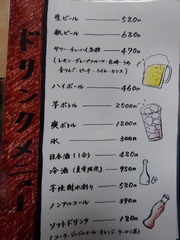 ドリンクメニュー
生ビール — 580円
瓶ビール — 680円
サワー・チューハイ各種 — 470円
(レモン・グレープフルーツ・巨峰・うめ
青りんご・ピーチ・ライム・カシス)
ハイボール — 460円
芋ボトル — 2500円
麦ボトル — 1800円
氷 — 300円
日本酒(1合) — 480円
冷酒(夏季限定) — 950円
芋焼酎水割り — 580円
ノンアルコール — 390円
ソフトドリンク — 180円
(コーラ・ジンジャエール・オレンジ・ウーロン茶)